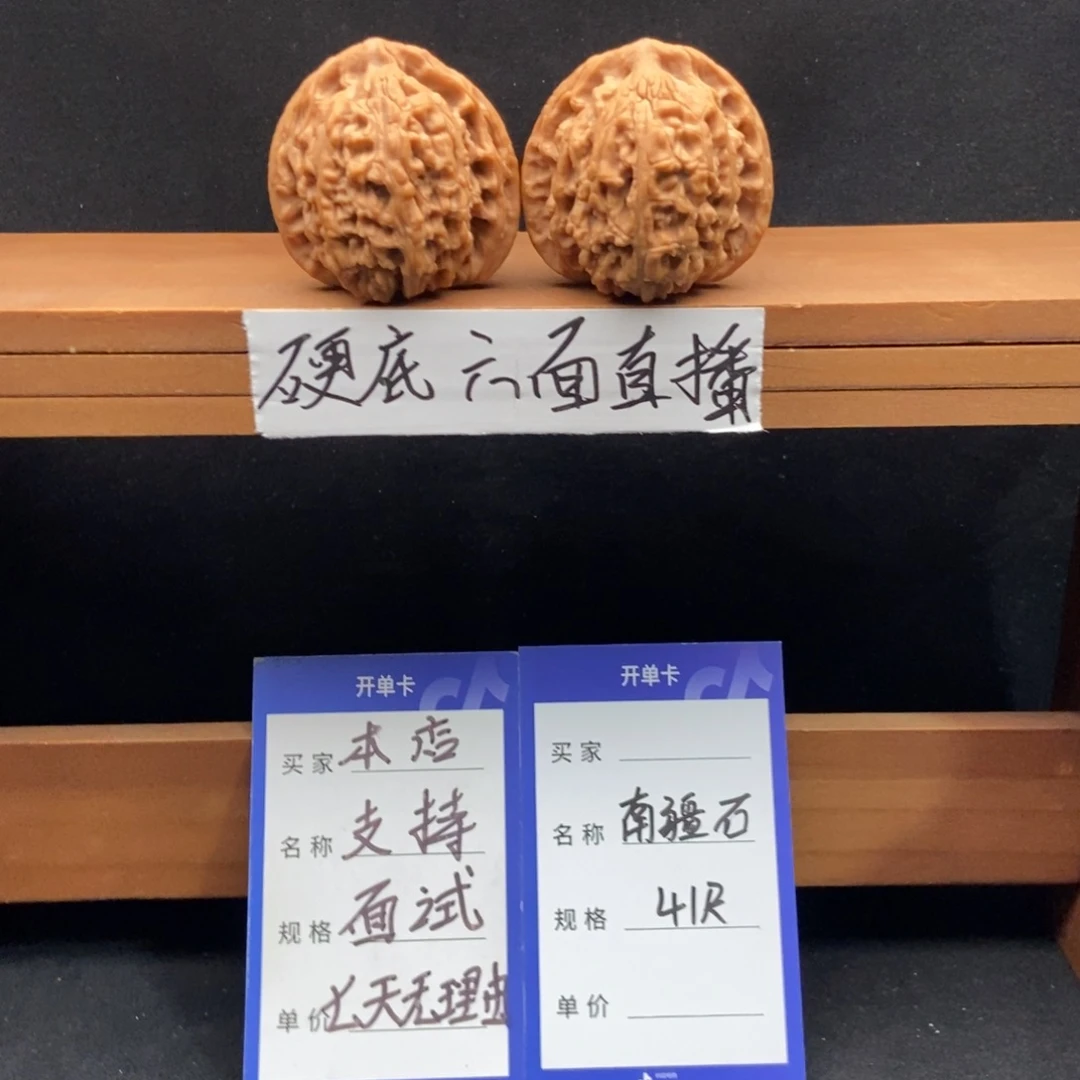 硬底 六面直播
开单卡
买家 本店
名称 支持
规格 面试
单价 七天无理由
开单卡
买家
名称 南疆石
规格 41R
单价